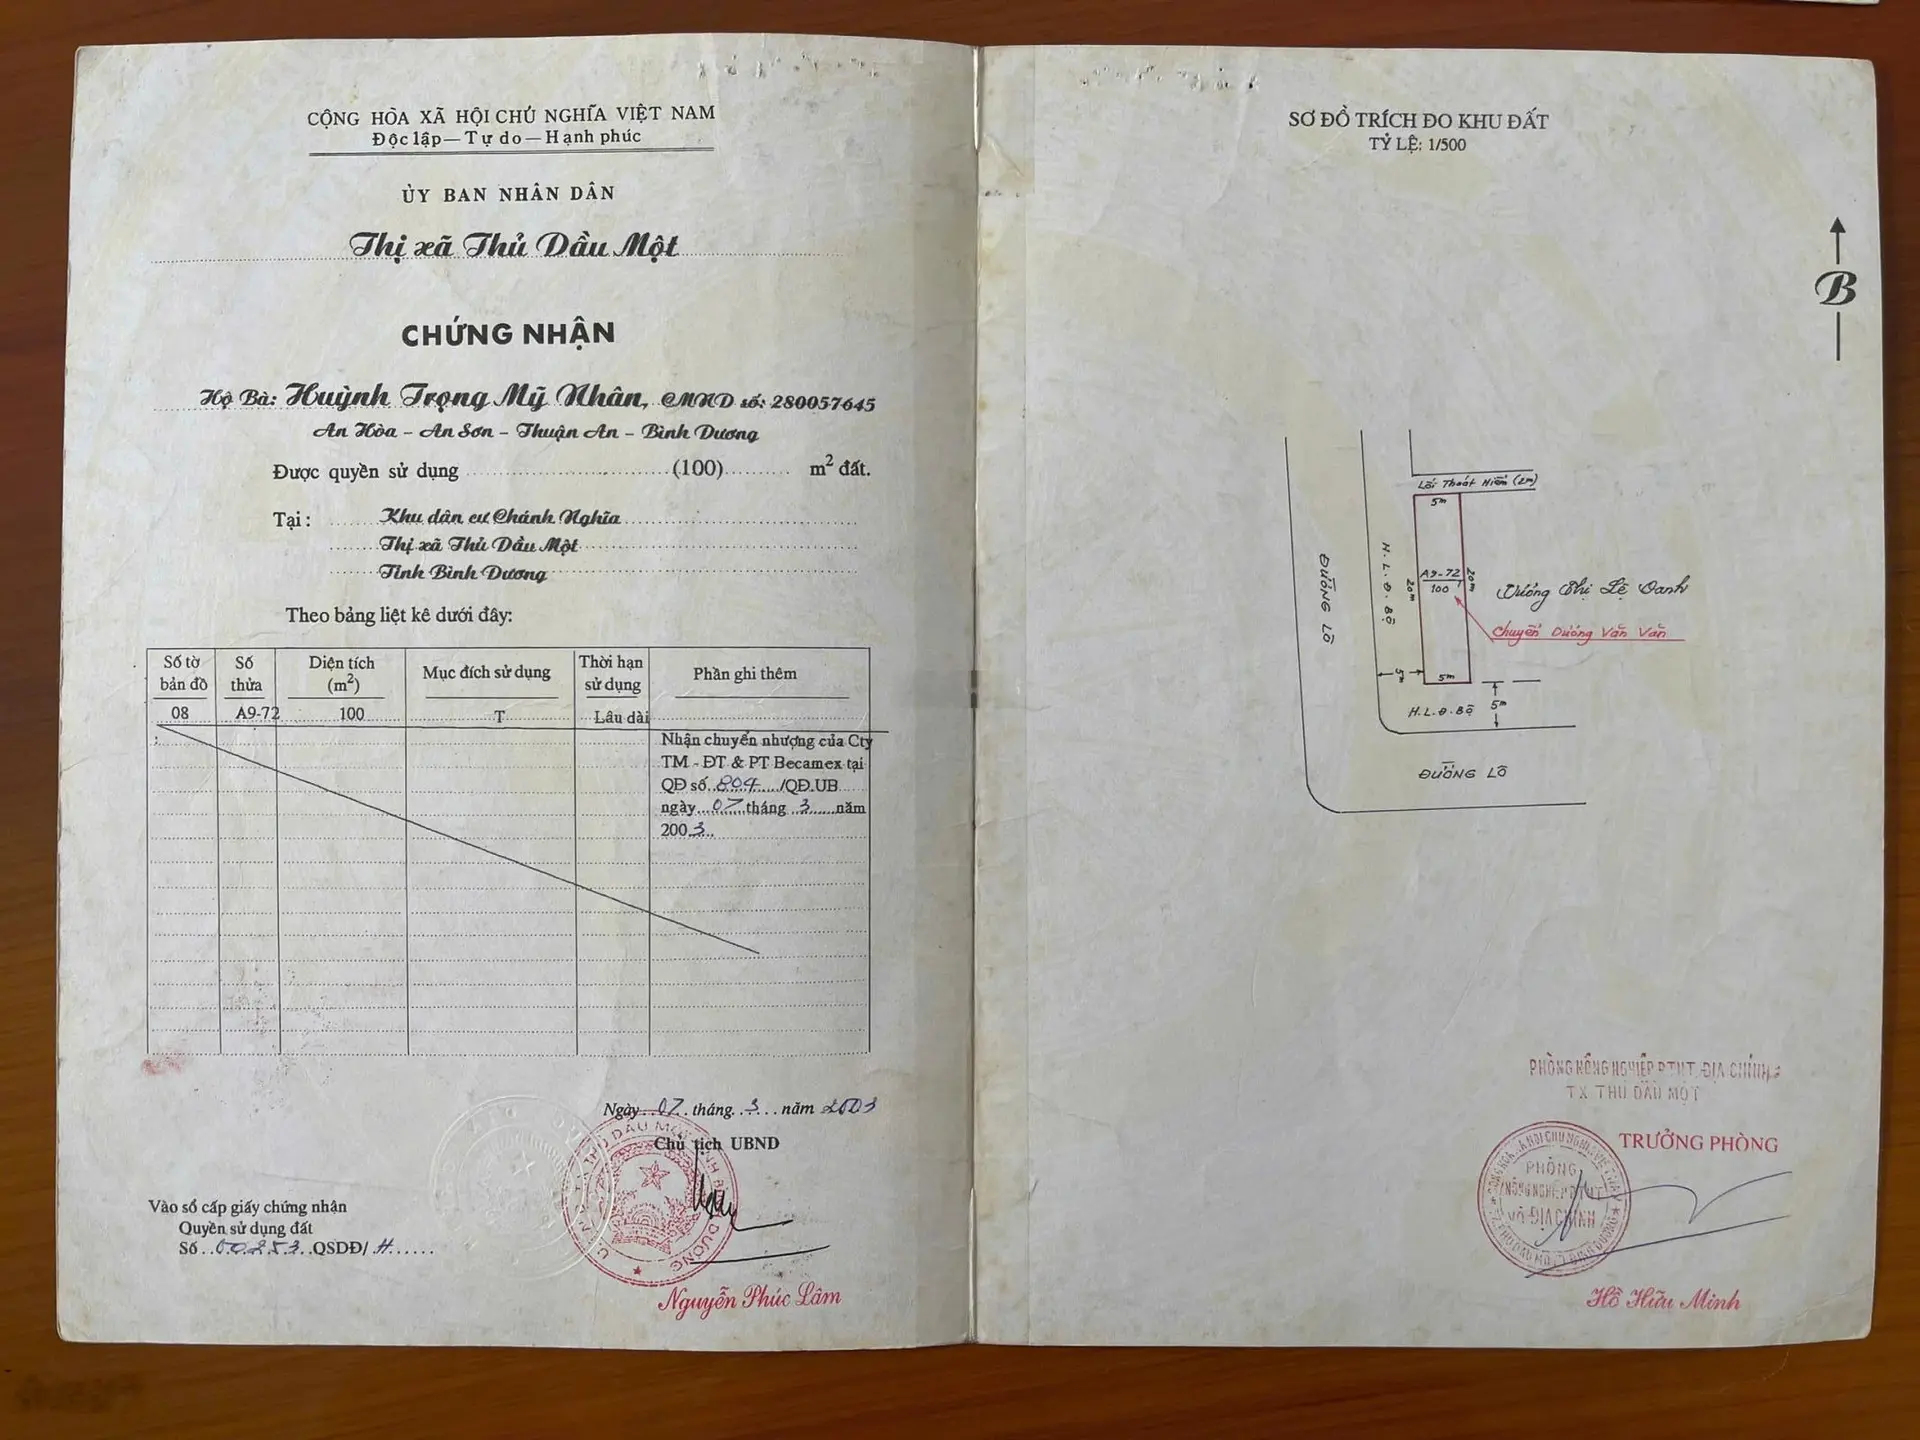 CỘNG HÒA XÃ HỘI CHỦ NGHĨA VIỆT NAM
Độc lập — Tự do — Hạnh phúc
ỦY BAN NHÂN DÂN
Thị xã Thủ Dầu Một
CHỨNG NHẬN
Hộ Bà: Huỳnh Trọng Mỹ Nhân, CMND số: 280057645
An Hòa - An Sơn - Thuận An - Bình Dương
Được quyền sử dụng (100) m² đất.
Tại: Khu dân cư Chánh Nghĩa
Thị xã Thủ Dầu Một
Tỉnh Bình Dương
Theo bảng liệt kê dưới đây:
Số tờ bản đồ Số thửa Diện tích (m²) Mục đích sử dụng Thời hạn sử dụng Phần ghi thêm
08 A9-72 100 T Lâu dài
Nhận chuyển nhượng của Cty
TM - ĐT & PT Becamex tại
QĐ số 804 /QĐ.UB
ngày 07 tháng 3 năm
2003
Ngày 07 tháng 3 năm 2003
Chủ tịch UBND
Vào sổ cấp giấy chứng nhận
Quyền sử dụng đất
Số 00253 QSDĐ/ H
Nguyễn Phúc Lâm
SƠ ĐỒ TRÍCH ĐO KHU ĐẤT
TỶ LỆ: 1/500
B
Lối Thoát Hiểm (2m)
5m
ĐƯỜNG LÔ
H.L.Đ.BỘ
20m
A9-72 T
100
20m
Dương Thị Lệ Oanh
Chuyển Dương Văn Văn
5m
5m
H.L.Đ.BỘ
5m
ĐƯỜNG LÔ
PHÒNG NÔNG NGHIỆP PTNT, ĐỊA CHÍNH
TX THỦ DẦU MỘT
TRƯỞNG PHÒNG
PHÒNG
NÔNG NGHIỆP PTNT
VÀ ĐỊA CHÍNH
Hồ Hữu Minh